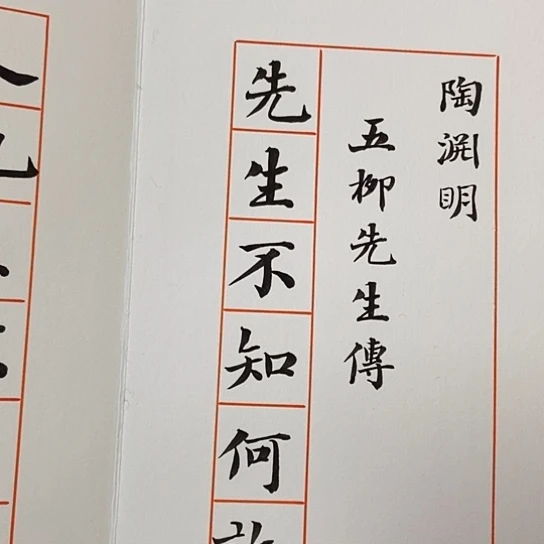 陶淵明
五柳先生傳
先生不知何